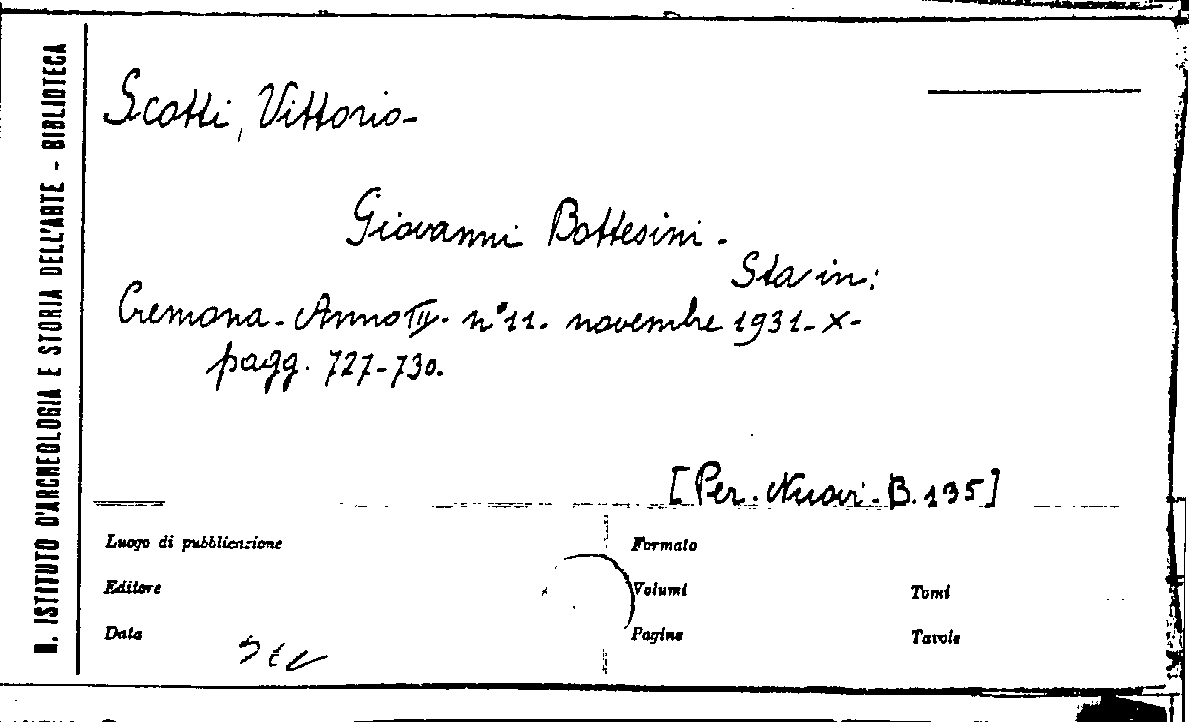 R. ISTITUTO D'ARCHEOLOGIA E STORIA DELL'ARTE - BIBLIOTECA
Scotti, Vittorio-
Giovanni Bottesini.
Sta in:
Cremona. Anno III. n° 11. novembre 1931-X-
pagg. 727-730.
[Per. Nuovi. B. 135]
Luogo di pubblicazione
Formato
Editore
Volumi
Tomi
Data
Pagine
Tavole